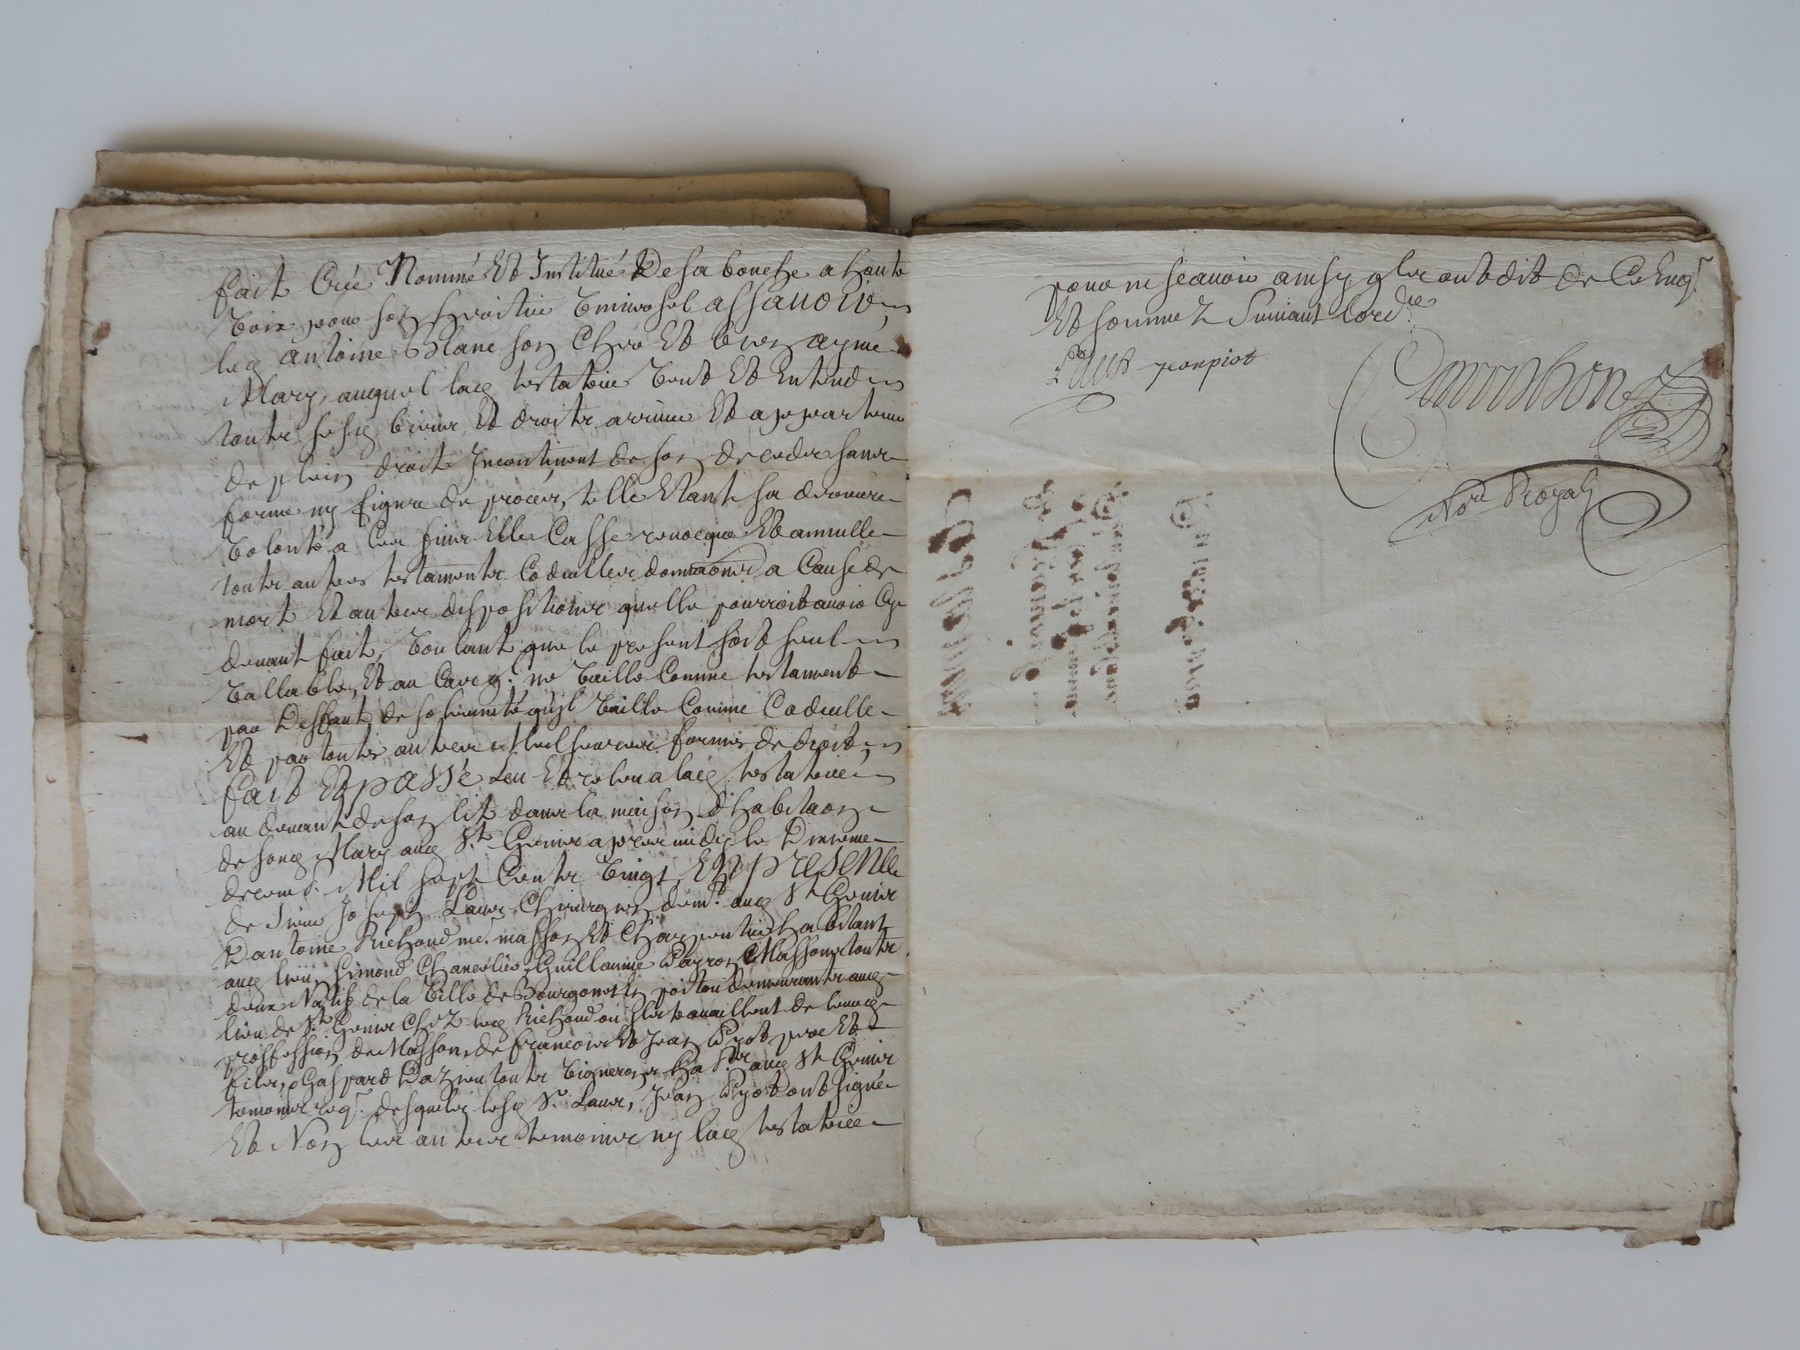 fait Créé Nommé Et Institué De sa bouche a haute
Voix pour son heritier Universel assavoir
led antoine Blanc son Cher Et bien aymé
Mary, auquel lad testatrice Veut Et Entend
toutes ses biens Et droits arriver Et appartenir
de plein droit Incontinent de son decedz sans
forme ny figure de procez, telle Etant sa derniere
Volonté a Ces fins Elle Casse revocque Et annulle
toutes autres testamentz Codicilles donnaonz a Cause de
mort Et autres dispositions quelle pourroit avoir Cy
devant fait, Voulant que le present soit seul
Vallable, Et au Cas q. ne Vaille Comme testament
par Deffaut de solemnité quil Vaille Comme Codicille
Et par toutes autres Meilheures formes de droit
fait Et passé Leu Et releu a lad testatrice
au devant de son lit dans la maison d'habitaon
de sond Mary aud St. Genier apres midy le Dixieme
decemb. Mil sept Centz Vingt, En presence
de Sieur Joseph Laur Chirurgien dem.t aud St. Genier
D'antoine Richaud me. masson Et Charpentier habitant
aud lieu, Simond Chancelier, Guillaume Massons toutz
deux Natifz de la Ville de en poitou demeurantz aud
lieu de St. Genier Chez led Richaud ou ils travaillent de leur
proffession de Masson, de francois Et Jean Pyot pere Et
filz, Gaspard toutz Vignerons ha aud St. Genier
temoins req. desquelz led Sr. Laur, Jean Pyot ont signé
Et Non les autres temoins ny lad testatrice
pour ne scavoir ainsy qls ont dit de Ce Enq.
Et sommez Suivant lord.ce
Laur jean piot
No.re Royal